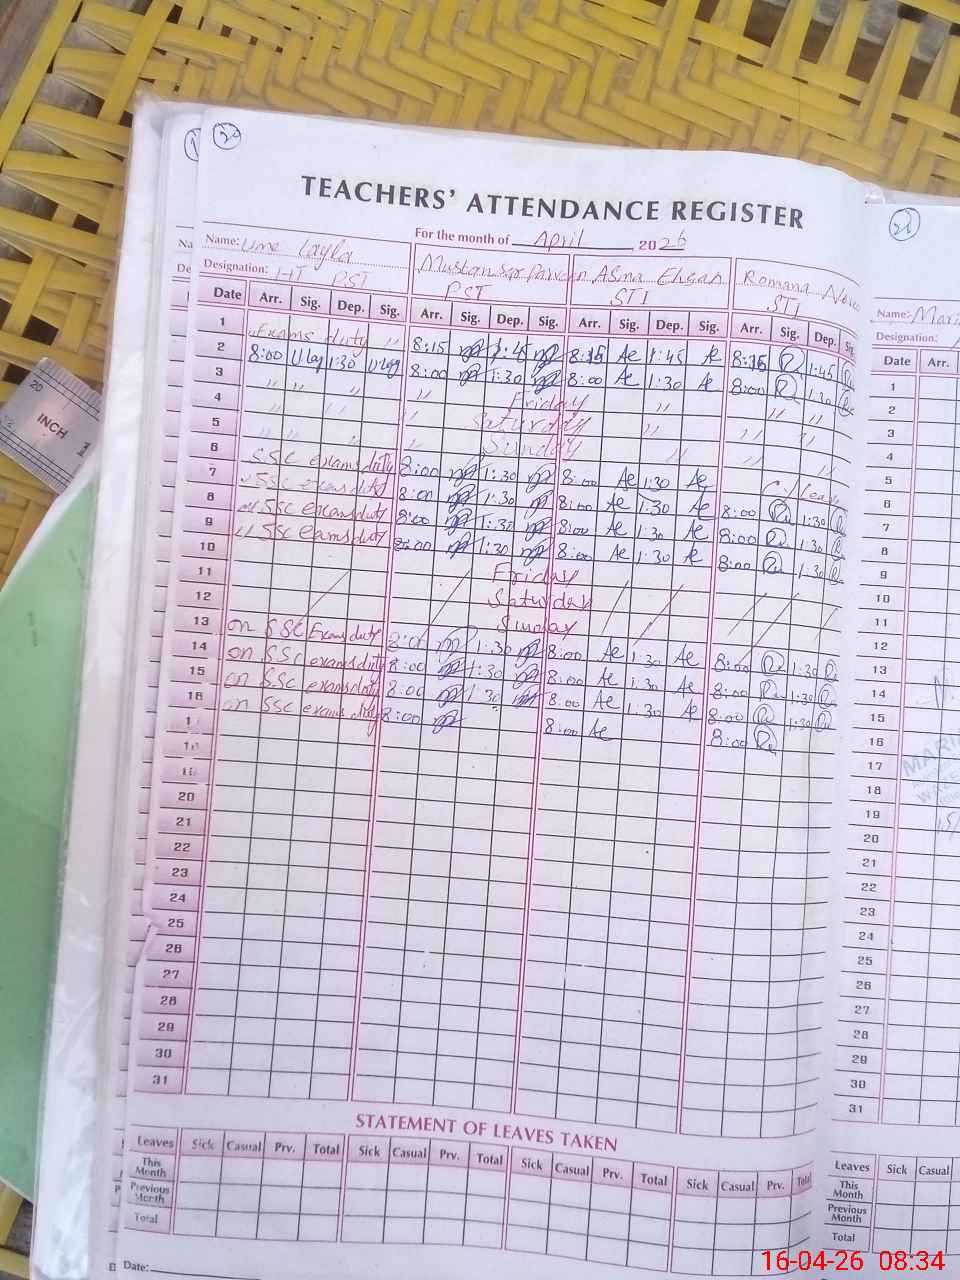 20
TEACHERS' ATTENDANCE REGISTER
For the month of April 2026
Name: Ume Layla
Designation: HT PST
Mustansar Parveen
PST
Asma Ehsan
STI
Romana
STI
Date Arr. Sig. Dep. Sig. Arr. Sig. Dep. Sig. Arr. Sig. Dep. Sig. Arr. Sig. Dep. Sig.
1 Exams duty " 8:15 1:45 8:15 Ae 1:45 Ae 8:15 R 1:45 R
2 8:00 Ulay 1:30 Ulay 8:00 1:30 8:00 Ae 1:30 Ae 8:00 R 1:30 R
3 " " " " Friday " " "
4 " " " " Saturday " " "
5 " " " " Sunday " " "
6 SSC exams duty 8:00 1:30 8:00 Ae 1:30 Ae C/leave
7 " SSC exams duty 8:00 1:30 8:00 Ae 1:30 Ae 8:00 R 1:30 R
8 " SSC exams duty 8:00 1:30 8:00 Ae 1:30 Ae 8:00 R 1:30 R
9 " SSC exams duty 8:00 1:30 8:00 Ae 1:30 Ae 8:00 R 1:30 R
10 Friday
11 Saturday
12 Sunday
13 on SSC Exams duty 8:00 1:30 8:00 Ae 1:30 Ae 8:00 R 1:30 R
14 on SSC exams duty 8:00 1:30 8:00 Ae 1:30 Ae 8:00 R 1:30 R
15 on SSC exams duty 8:00 1:30 8:00 Ae 1:30 Ae 8:00 R 1:30 R
16 on SSC exams duty 8:00 8:00 Ae 8:00 R
20
21
22
23
24
25
26
27
28
29
30
31
STATEMENT OF LEAVES TAKEN
Leaves Sick Casual Prv. Total Sick Casual Prv. Total Sick Casual Prv. Total Sick Casual Prv. Total
This Month
Previous Month
Total
Date:
21
Name: Mari
Designation:
Date Arr.
1
2
3
4
5
6
7
8
9
10
11
12
13
14
15
16
17
18
19
20
21
22
23
24
25
26
27
28
29
30
31
Leaves Sick Casual
This Month
Previous Month
Total
20
INCH
1
16-04-26 08:34